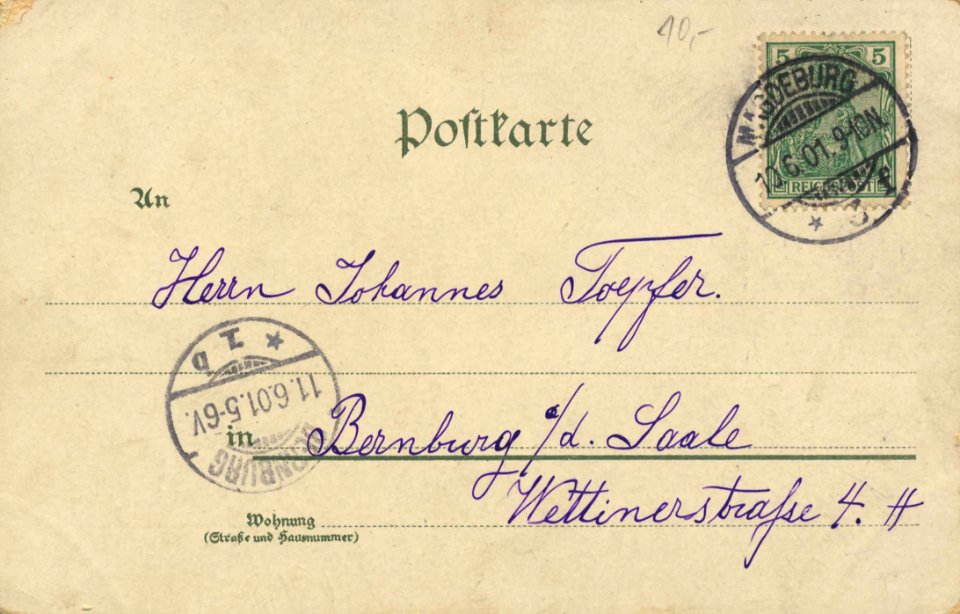 10,-
5 5
MAGDEBURG
10.6.01.9-10N.
REICHSPOST
Postkarte
An
Herrn Johannes Toepfer.
1 b
11.6.01.5-6V.
BERNBURG
in Bernburg a/d. Saale
Wettinerstraße 4.
Wohnung
(Straße und Hausnummer)